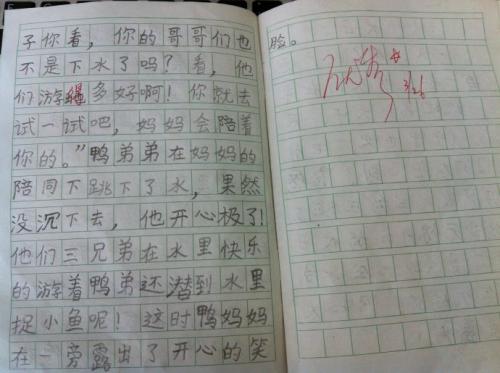 子你看，你的哥哥们也
不是下水了吗？看，他
们游得多好啊！你就去
试一试吧，妈妈会陪着
你的。”鸭弟弟在妈妈的
陪同下跳下了水，果然
没沉下去，他开心极了！
他们三兄弟在水里快乐
的游着鸭弟还潜到水里
捉小鱼呢！这时鸭妈妈
在一旁露出了开心的笑
脸。